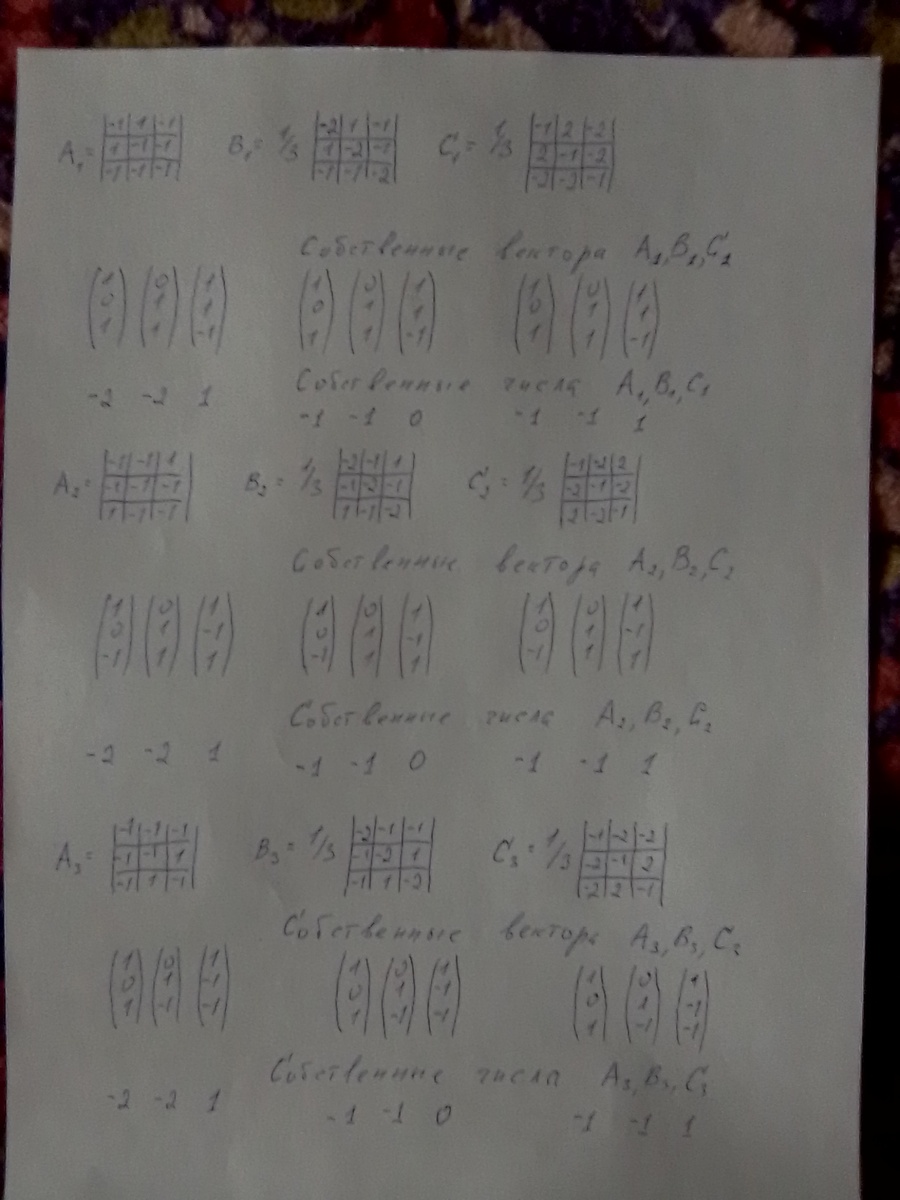 A₁= |-1|1|-1| B₁= 1/3 |-2|1|-1| C₁= 1/3 |-1|2|-2|
|1|-1|-1| |1|-2|-1| |2|-1|-2|
|-1|-1|-1| |-1|-1|-2| |-2|-2|-1|
Собственные вектора A₁,B₁,C₁
(1 0 1) (1 0 1) (1 0 1)
(0 1 1) (0 1 1) (0 1 1)
(1 1 -1) (1 1 -1) (1 1 -1)
Собственные числа A₁,B₁,C₁
-2 -2 1 -1 -1 0 -1 -1 1
A₂= |-1|-1|1| B₂= 1/3 |-2|-1|1| C₂= 1/3 |-1|-2|2|
|-1|-1|-1| |-1|-2|-1| |-2|-1|-2|
|1|-1|-1| |1|-1|-2| |2|-2|-1|
Собственные вектора A₂,B₂,C₂
(1 0 1) (1 0 1) (1 0 1)
(0 1 -1) (0 1 -1) (0 1 -1)
(-1 1 1) (-1 1 1) (-1 1 1)
Собственные числа A₂,B₂,C₂
-2 -2 1 -1 -1 0 -1 -1 1
A₃= |-1|-1|-1| B₃= 1/3 |-2|-1|-1| C₃= 1/3 |-1|-2|-2|
|-1|-1|1| |-1|-2|1| |-2|-1|2|
|-1|1|-1| |-1|1|-2| |-2|2|-1|
Собственные вектора A₃,B₃,C₃
(1 0 1) (1 0 1) (1 0 1)
(0 1 -1) (0 1 -1) (0 1 -1)
(1 -1 -1) (1 -1 -1) (1 -1 -1)
Собственние числа A₃,B₃,C₃
-2 -2 1 -1 -1 0 -1 -1 1